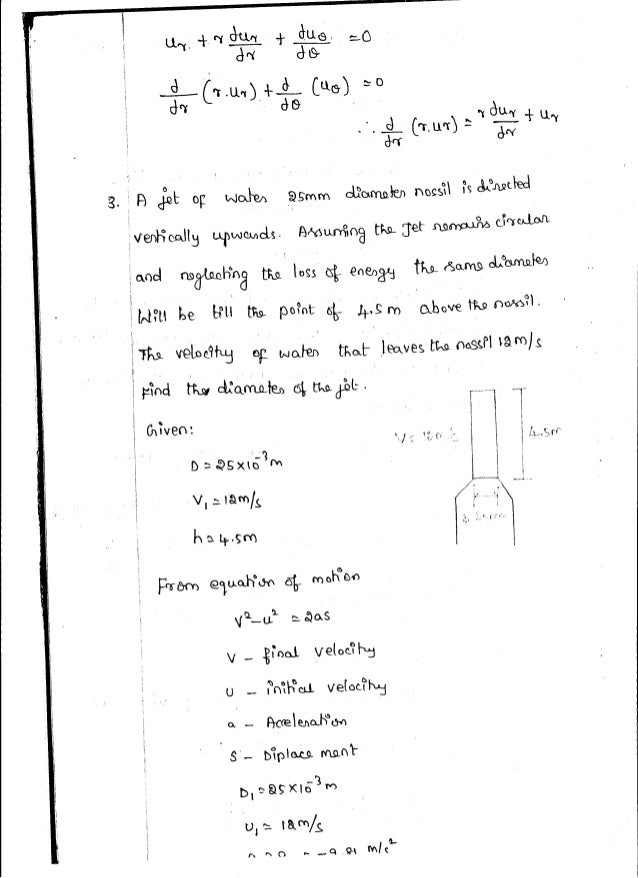 ur. + r dur/dr + duθ/dθ = 0
d/dr (r.ur) + d/dθ (uθ) = 0
∴ d/dr (r.ur) = r dur/dr + ur
3. A jet of water 25mm diameter nossil is directed
vertically upwards. Assuming the Jet remains circular
and neglecting the loss of energy the same diameter
Will be till the point of 4.5m above the nossil.
The velocity of water that leaves the nossil 12m/s
Find the diameter of the jet.
Given:
4.5m
D = 25×10⁻³m
V₁ = 12m/s
h = 4.5m
From equation of motion
V²-u² = 2as
V - final velocity
U - initial velocity
a - Acceleration
S - Diplace ment
D₁ = 25×10⁻³m
U₁ = 12m/s